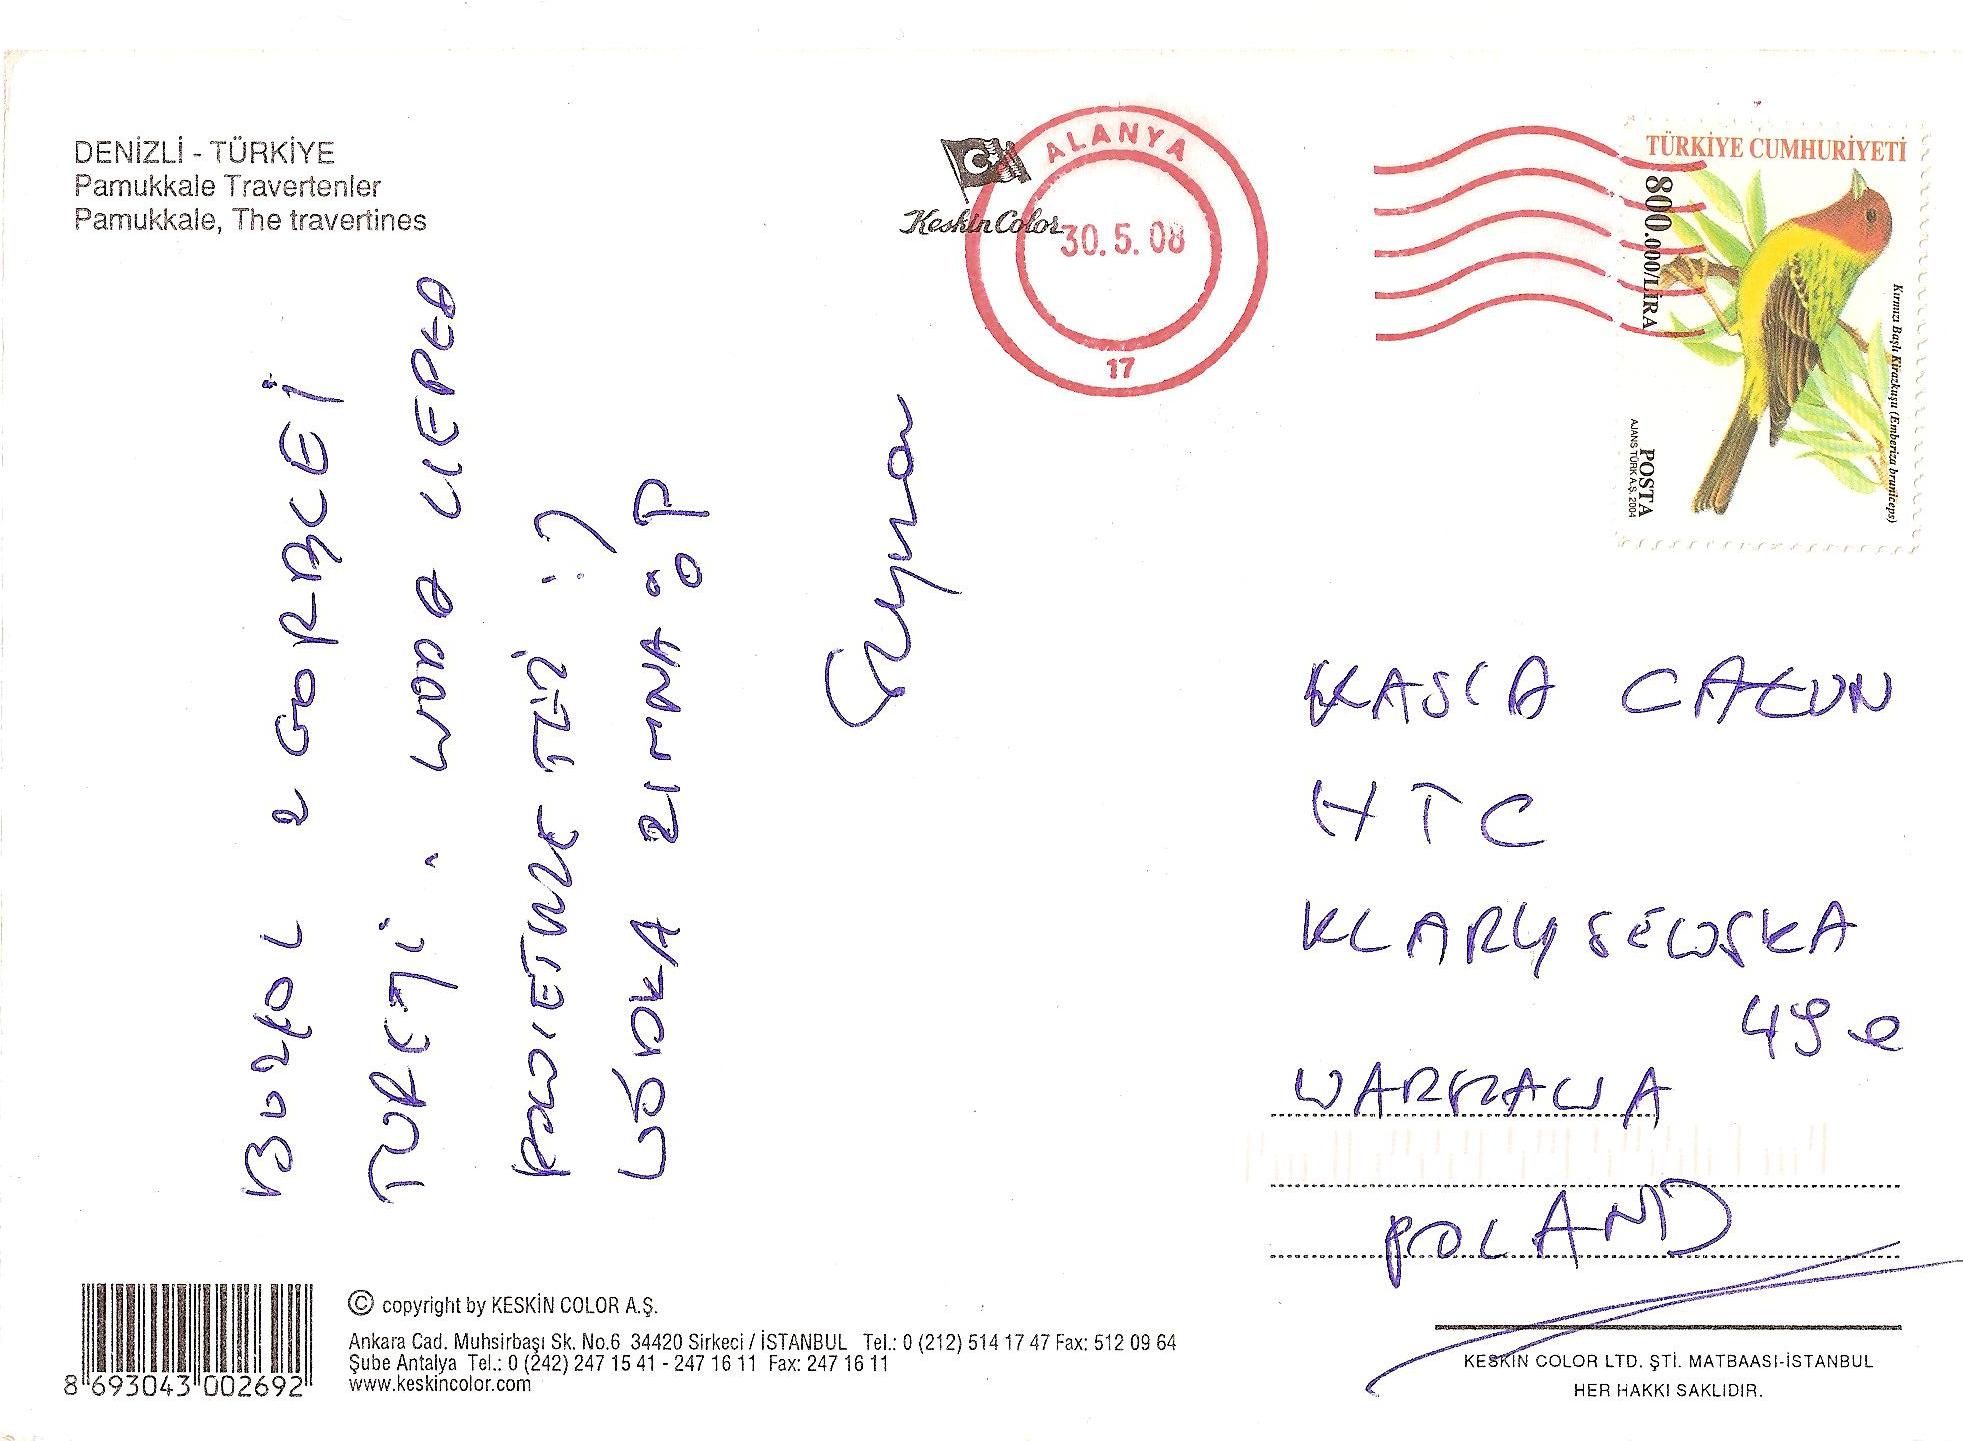 DENİZLİ - TÜRKİYE
Pamukkale Travertenler
Pamukkale, The travertines
Keskin Color
ALANYA
30.5.08
17
TÜRKİYE CUMHURİYETİ
800.000/LİRA
Kırmızı Başlı Kirazkuşu (Emberiza bruniceps)
POSTA
AJANS TÜRK A.Ş. 2004
BUZIOL Z GORĄCEJ
TURCJI. WODA CIEPŁA
POWIETRZE TEŻ :)
WÓDKA ZIMNA :P
Szymon
KASIA
HTC
KLARYSEWSKA
WARSZAWA
POLAND
8 693043 002692
© copyright by KESKİN COLOR A.Ş.
Ankara Cad. Muhsirbaşı Sk. No.6 34420 Sirkeci / İSTANBUL Tel.: 0 (212) 514 17 47 Fax: 512 09 64
Şube Antalya Tel.: 0 (242) 247 15 41 - 247 16 11 Fax: 247 16 11
www.keskincolor.com
KESKİN COLOR LTD. ŞTİ. MATBAASI-İSTANBUL
HER HAKKI SAKLIDIR.